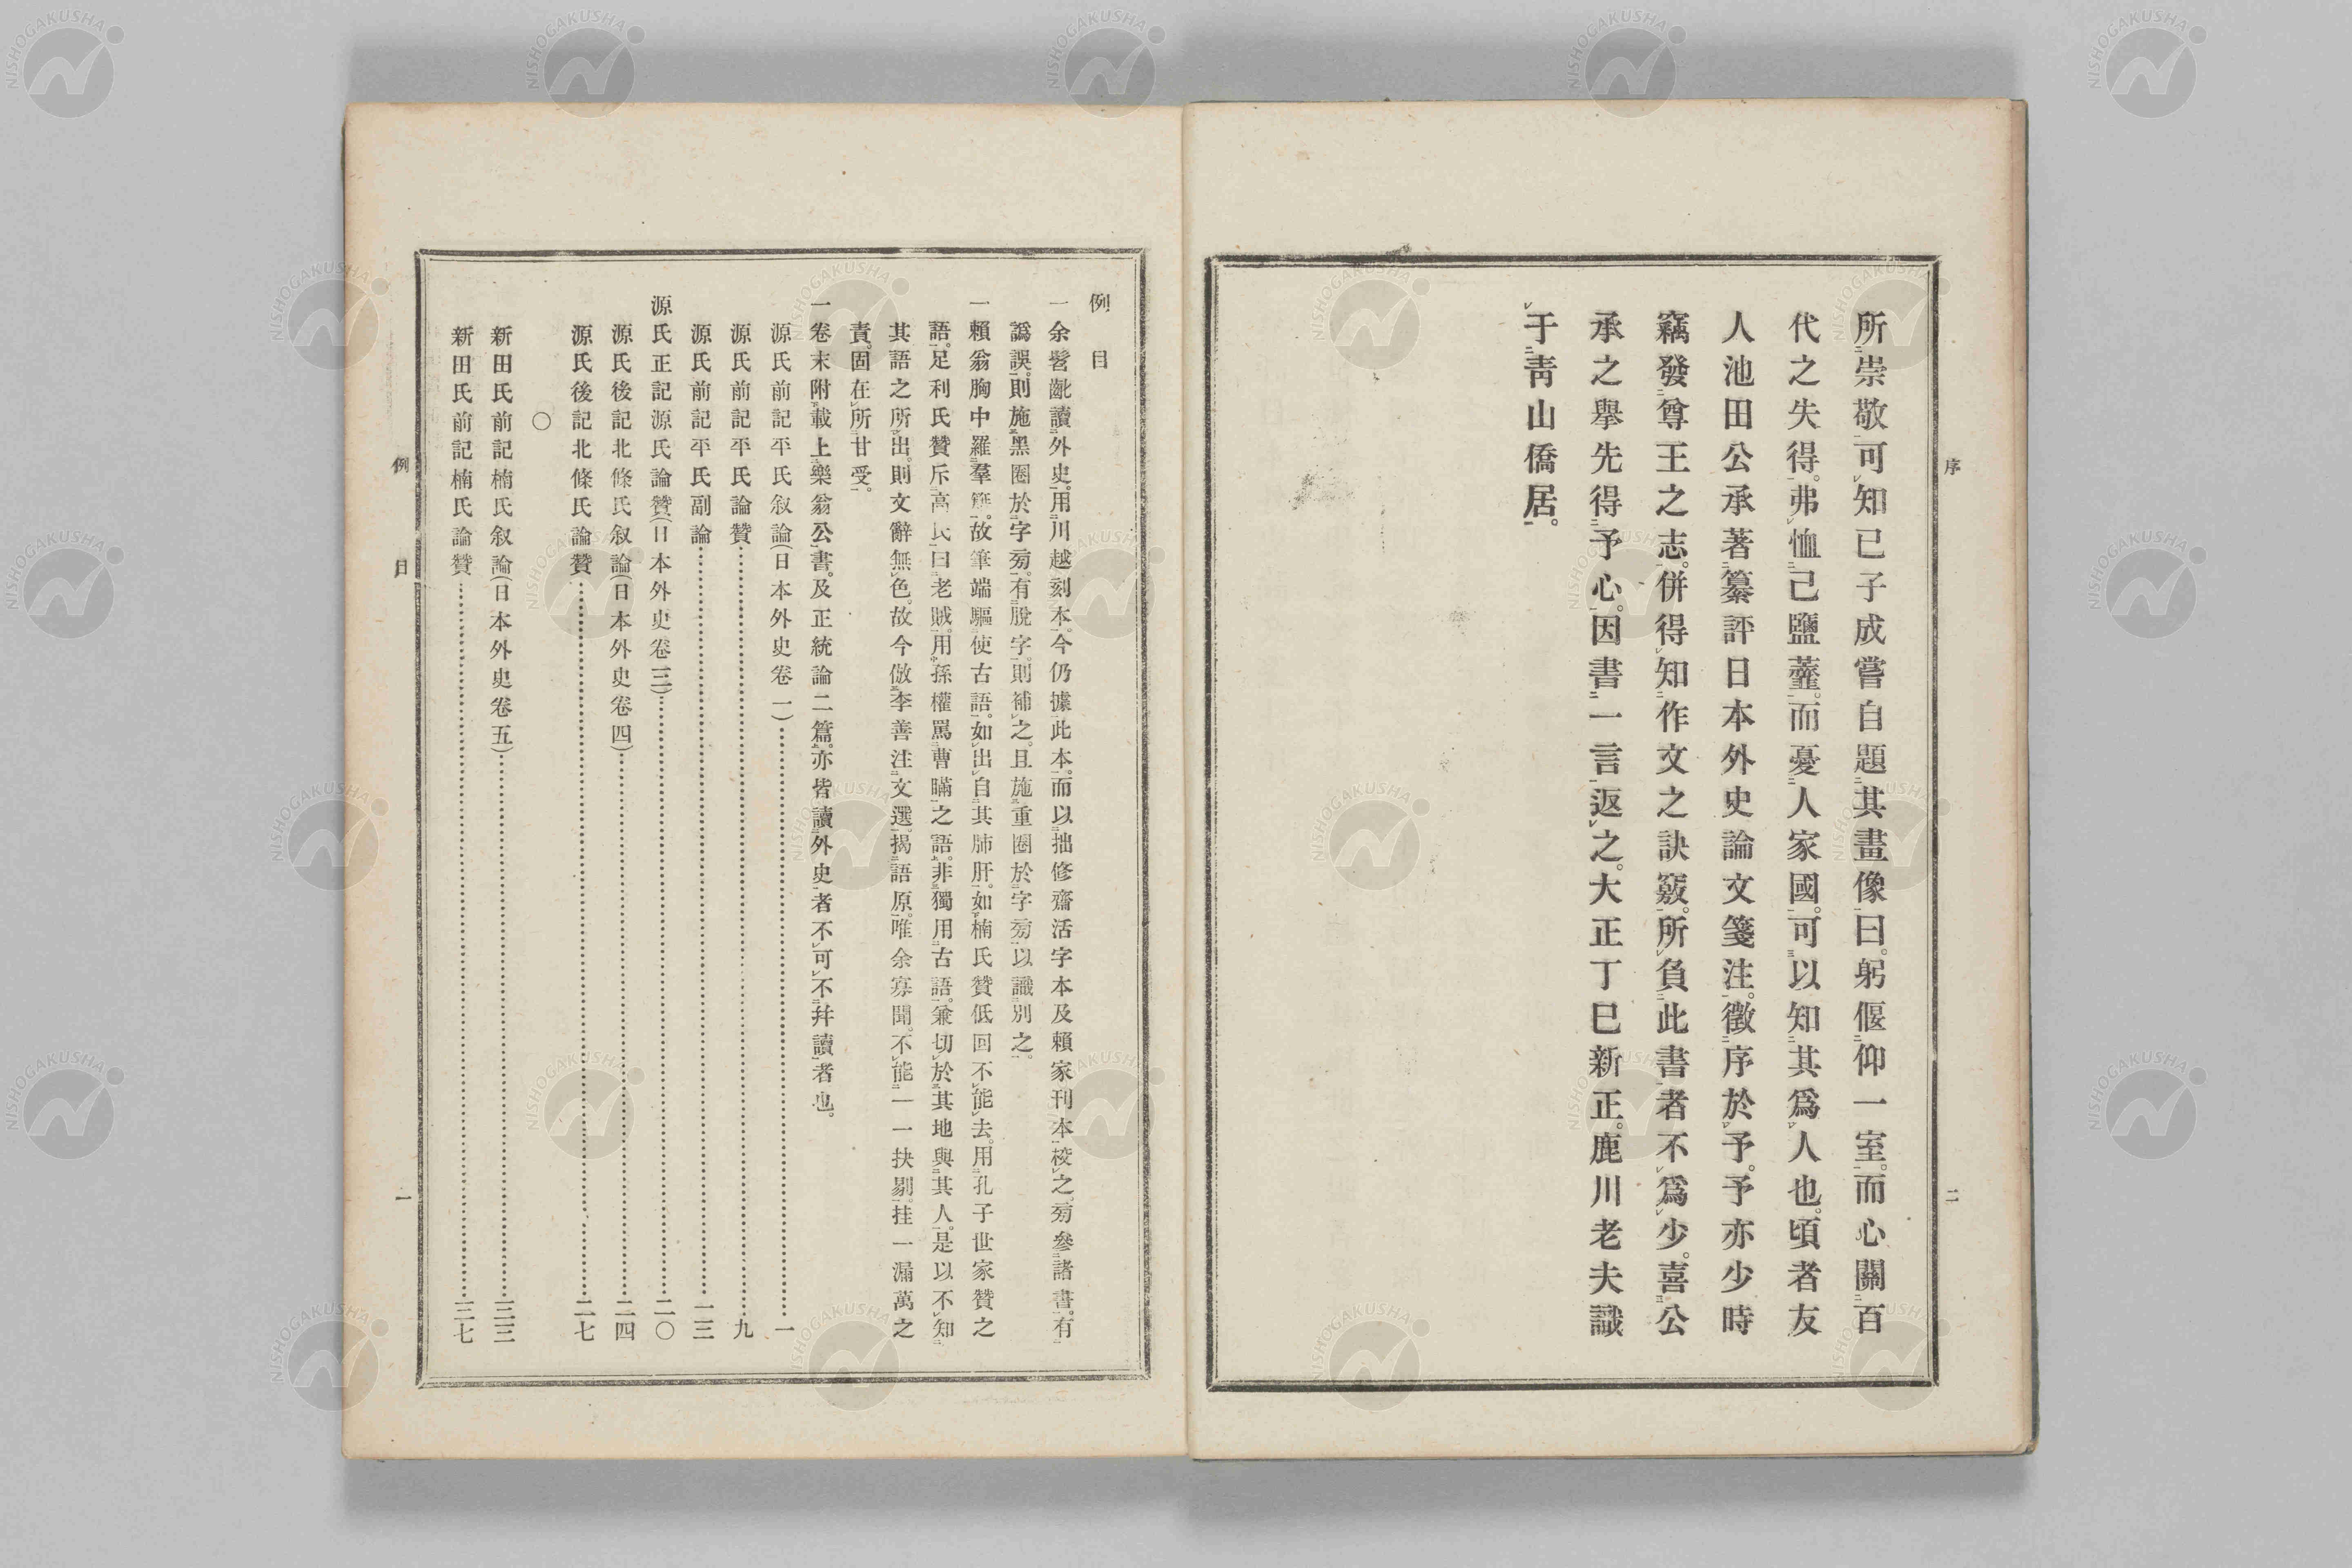 序
二
所崇敬可知已子成嘗自題其畫像曰。躬偃仰一室。而心關百
代之失得。弗恤己鹽虀。而憂人家國。可以知其爲人也。頃者友
人池田公承著纂評日本外史論文箋注。徵序於予。予亦少時
竊發尊王之志。併得知作文之訣竅。所負此書者不爲少。喜公
承之擧先得予心。因書一言返之。大正丁巳新正。鹿川老夫識
于靑山僑居。
例目
一余髫齔讀外史。用川越刻本。今仍據此本。而以拙修齋活字本及賴家刊本校之。旁參諸書。有
譌誤。則施黑圈於字旁。有脫字。則補之。且施重圈於字旁以識別之。
一賴翁胸中羅羣籍。故筆端驅使古語。如出自其肺肝。如楠氏贊低回不能去。用孔子世家贊之
語。足利氏贊斥高氏曰老賊。用孫權罵曹瞞之語。非獨用古語。兼切於其地與其人。是以不知
其語之所出。則文辭無色。故今倣李善注文選。揭語原。唯余寡聞。不能一一抉剔。挂一漏萬之
責。固在所甘受。
一卷末附載上樂翁公書。及正統論二篇。亦皆讀外史者不可不幷讀者也。
源氏前記平氏敍論(日本外史卷一)……一
源氏前記平氏論贊……九
源氏前記平氏副論……一三
源氏正記源氏論贊(日本外史卷三)……二〇
源氏後記北條氏敍論(日本外史卷四)……二四
源氏後記北條氏論贊……二七
〇
新田氏前記楠氏敍論(日本外史卷五)……三三
新田氏前記楠氏論贊……三七
例
目
一
NISHOGAKUSHA